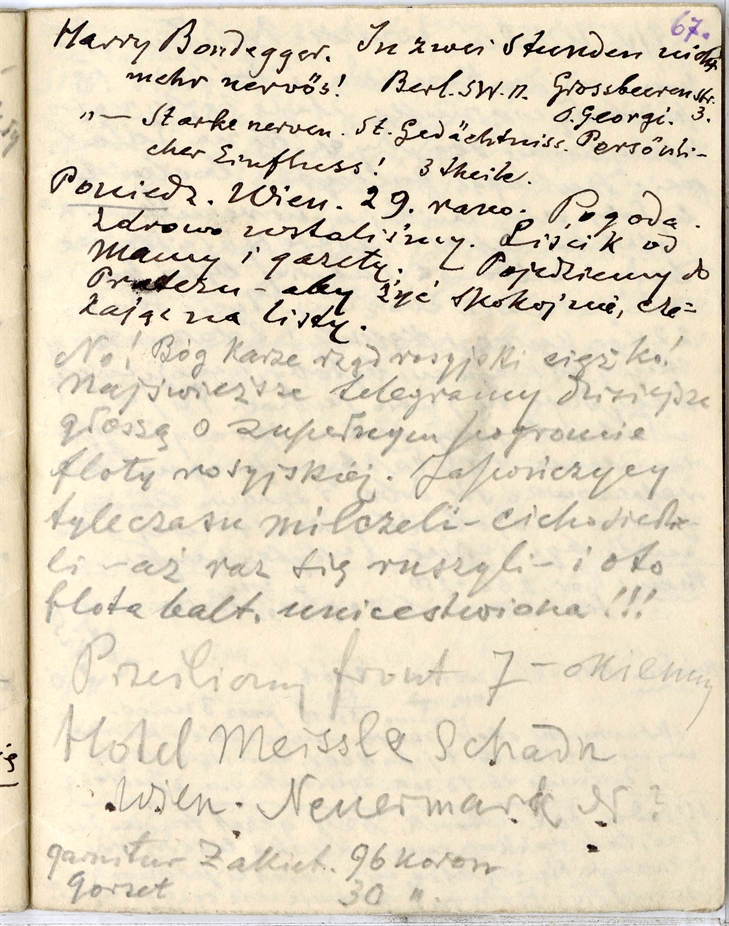 67.
Harry Bondegger. In zwei Stunden nicht
mehr nervös! Berl. SW. 11. Grossbeerenstr.
O. Georgi. 3.
"— Starke nerven. St. Gedächtniss. Persönli-
cher Einfluss! 3 theile.
Poniedz. Wien. 29. rano. Pogoda.
Zdrowo wstaliśmy. Liścik od
Mamy i gazety. Pojedziemy do
Prateru – aby żyć spokojnie, cze=
kając na listy.
No! Bóg karze rząd rosyjski ciężko!
Najświeższe telegramy dzisiejsze
głoszą o zupełnym pogromie
floty rosyjskiej. Japończycy
tyleczasu milczeli – cicho siedzie-
li – aż raz się ruszyli – i oto
flota balt. unicestwiona!!!
front 7 – okienny
Hotel Meissl & Schadn
Wien. Neuermark N?
garnitur Żakiet. 96 koron
Gorset 30 "